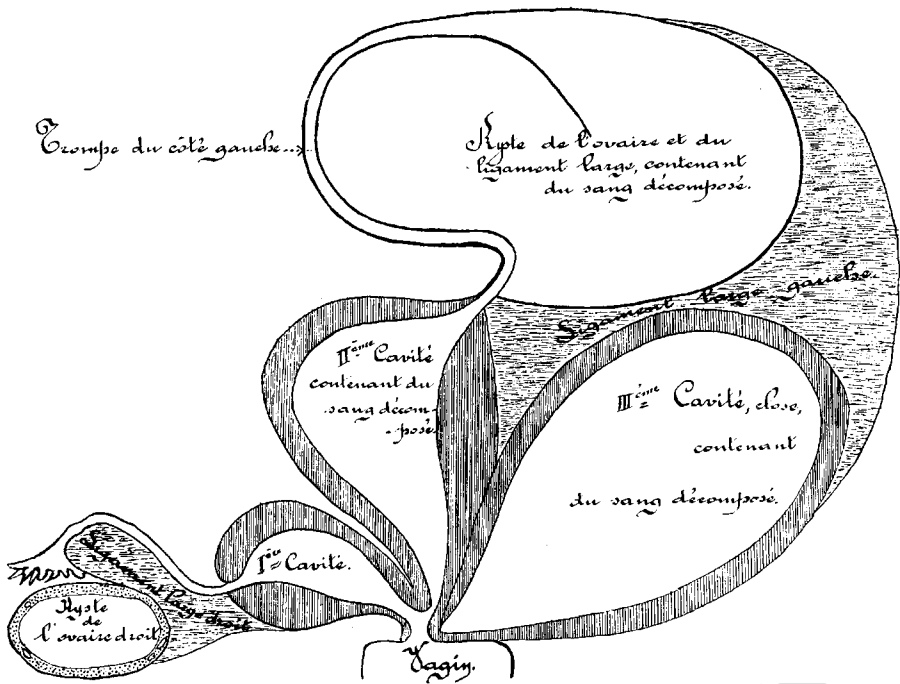 Trompe du côté gauche...
Kyste de l'ovaire et du
ligament large, contenant
du sang décomposé.
Ligament large gauche.
IIème Cavité
contenant du
sang décom-
-posé.
IIIème Cavité, close,
contenant
du sang décomposé.
Ière Cavité.
Ligament large droit
Kyste
de
l'ovaire droit
Vagin.